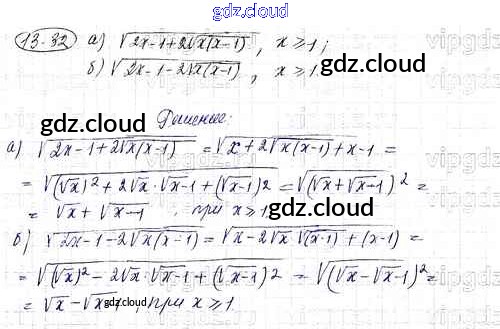 gdz.cloud
13.32 а) √(2x-1+2√(x(x-1))), x ≥ 1;
б) √(2x-1-2√(x(x-1))), x ≥ 1.
gdz.cloud
gdz.cloud
Решение:
а) √(2x-1+2√(x(x-1))) = √(x+2√(x(x-1))+x-1) =
= √((√x)²+2√x·√(x-1)+(√(x-1))²) = √((√x+√(x-1))²) =
= √x+√(x-1), при x ≥ 1
gdz.cloud
б) √(2x-1-2√(x(x-1))) = √(x-2√x√(x-1)+(x-1)) =
= √((√x)²-2√x·√(x-1)+(√(x-1))²) = √((√x-√(x-1))²) =
= √x-√x, при x ≥ 1
gdz.cloud